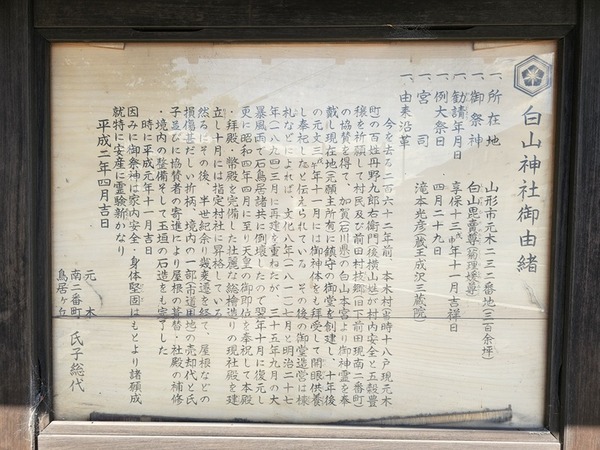 白山神社御由緒
一、所在地　山形市元木二ー二ー二番地(三百余坪)
一、御祭神　白山毘賣尊(菊理媛尊)
一、勧請年月日　享保十三年十一月吉祥日
一、例大祭日　四月二十九日
一、宮司　滝本光彦(蔵王成沢三蔵院)
一、由来沿革
今を去る二百六十二年前、本木村(当時十八戸現元木
町)の百姓丹野九郎右衛門後横山姓が村内安全と五穀豊
穣を祈願して村民及び前田村枝郷(旧下前田現南二番町)
の協賛を得て、加賀(石川県)の白山本宮より御神霊を奉
戴し現在地(元願主所有)に鎮守の御堂を創建し、十年後
の元文三年十一月には御神体をも拝受して開眼供養
し奉祀したと伝えられている その後の御堂造営は棟
札などによれば、文化八年(一八一一)七月と明治二十七
年(一八九四)三月に再建を重ねたが、三十五年九月の大
暴風雨で石鳥居諸共に倒壊したので翌年十月に復元し
更に昭和四年四月に至り天皇の御即位を奉祝して本殿
・拝殿、幣殿を完備した壮麗な総檜造りの現社殿を建
立し十月には指定村社に昇格している
然るにその後、半世紀余り幾変遷を経て、屋根などの
損傷甚だしい折柄、境内の一部(市道用地)の売却代と氏
子並びに協賛者の寄進により屋根の葺替・社殿の補修
・境内の整備そして玉垣の石造をも完了した
時に平成元年十一月吉日
因みに御祭神は家内安全、身体堅固はもとより諸願成
就特に安産に霊験新かなり
平成二年四月吉日
元木
南二番町
鳥居ヶ丘
氏子総代